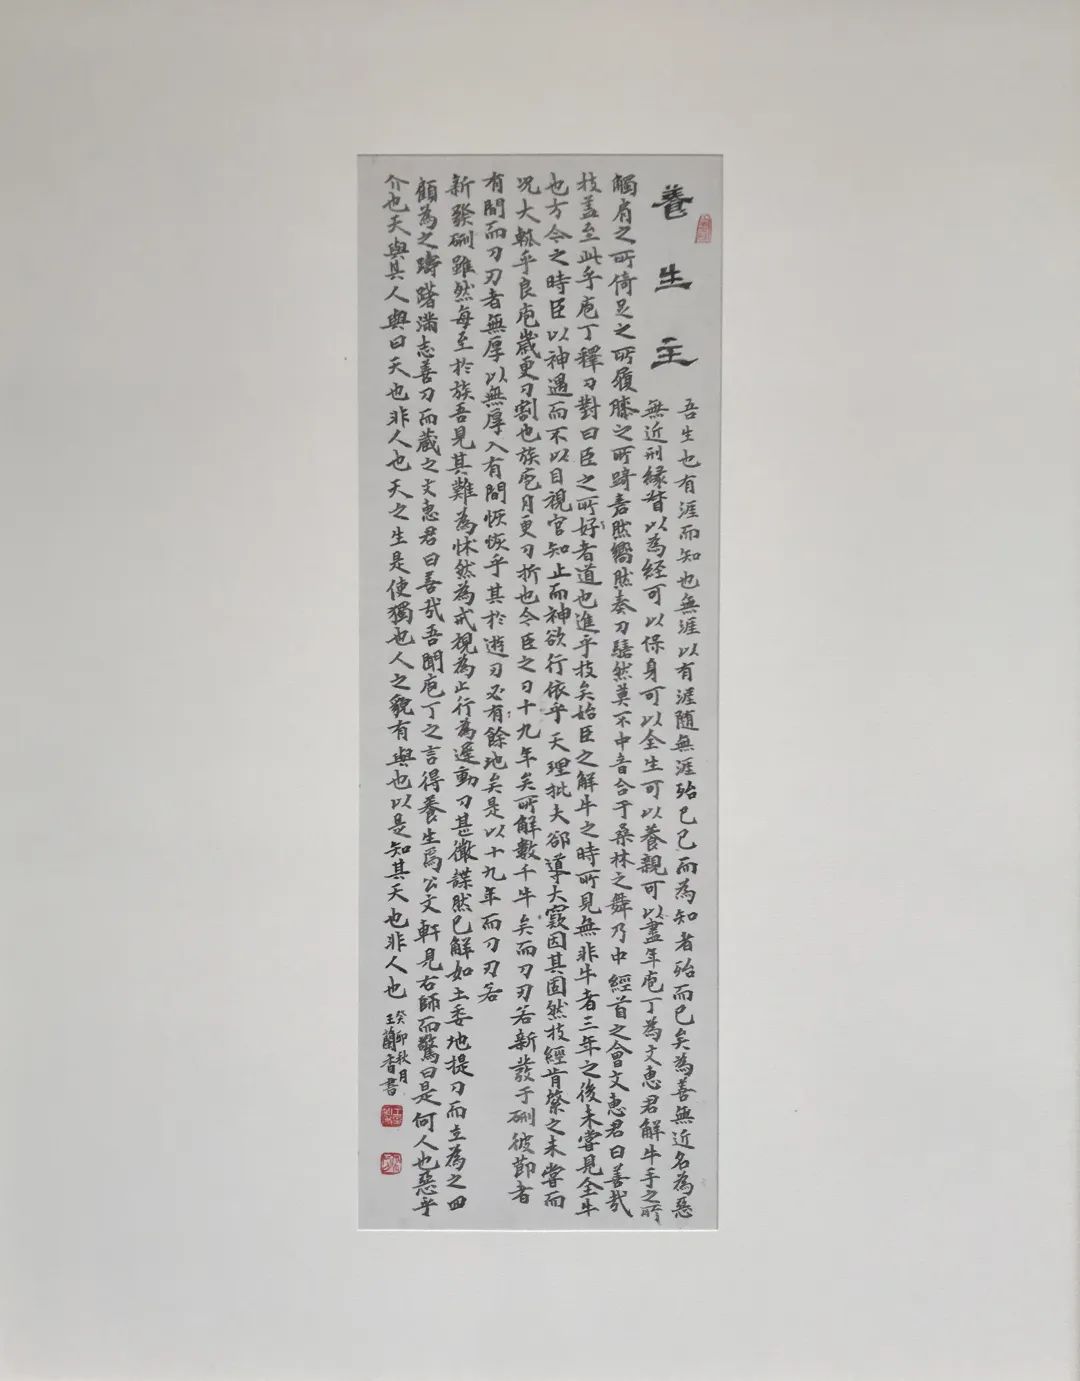 養生主
吾生也有涯而知也無涯以有涯随無涯殆已已而為知者殆而已矣為善無近名為惡
無近刑緣督以為經可以保身可以全生可以養親可以盡年庖丁為文惠君解牛手之所
觸肩之所倚足之所履膝之所踦砉然嚮然奏刀騞然莫不中音合于桑林之舞乃中經首之會文惠君曰善哉
技盖至此乎庖丁釋刀對曰臣之所好者道也進乎技矣始臣之解牛之時所見無非牛者三年之後未嘗見全牛
也方今之時臣以神遇而不以目視官知止而神欲行依乎天理批大郤導大窾因其固然技經肯綮之未嘗而
况大軱乎良庖歲更刀割也族庖月更刀折也今臣之刀十九年矣所解數千牛矣而刀刃若新發于硎彼節者
有間而刀刃者無厚以無厚入有間恢恢乎其於遊刃必有餘地矣是以十九年而刀刃若
新發硎雖然每至於族吾見其難為怵然為戒視為止行為遲動刀甚微謋然已解如土委地提刀而立為之四
顧為之躊躇滿志善刀而藏之文惠君曰善哉吾聞庖丁之言得養生焉公文軒見右師而驚曰是何人也惡乎
介也天與其人與曰天也非人也天之生是使獨也人之貌有與也以是知其天也非人也
癸卯秋月
王蘭香書